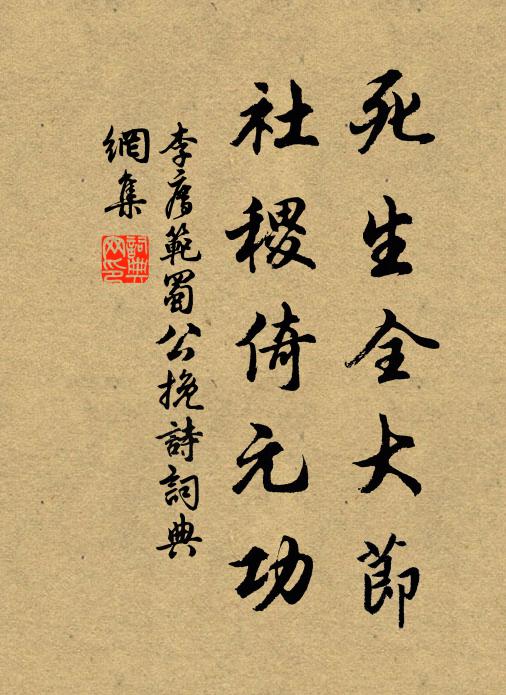 死生全大節
社稷倚元功
李廌範蜀公挽詩詞典
網集
詞典
网印